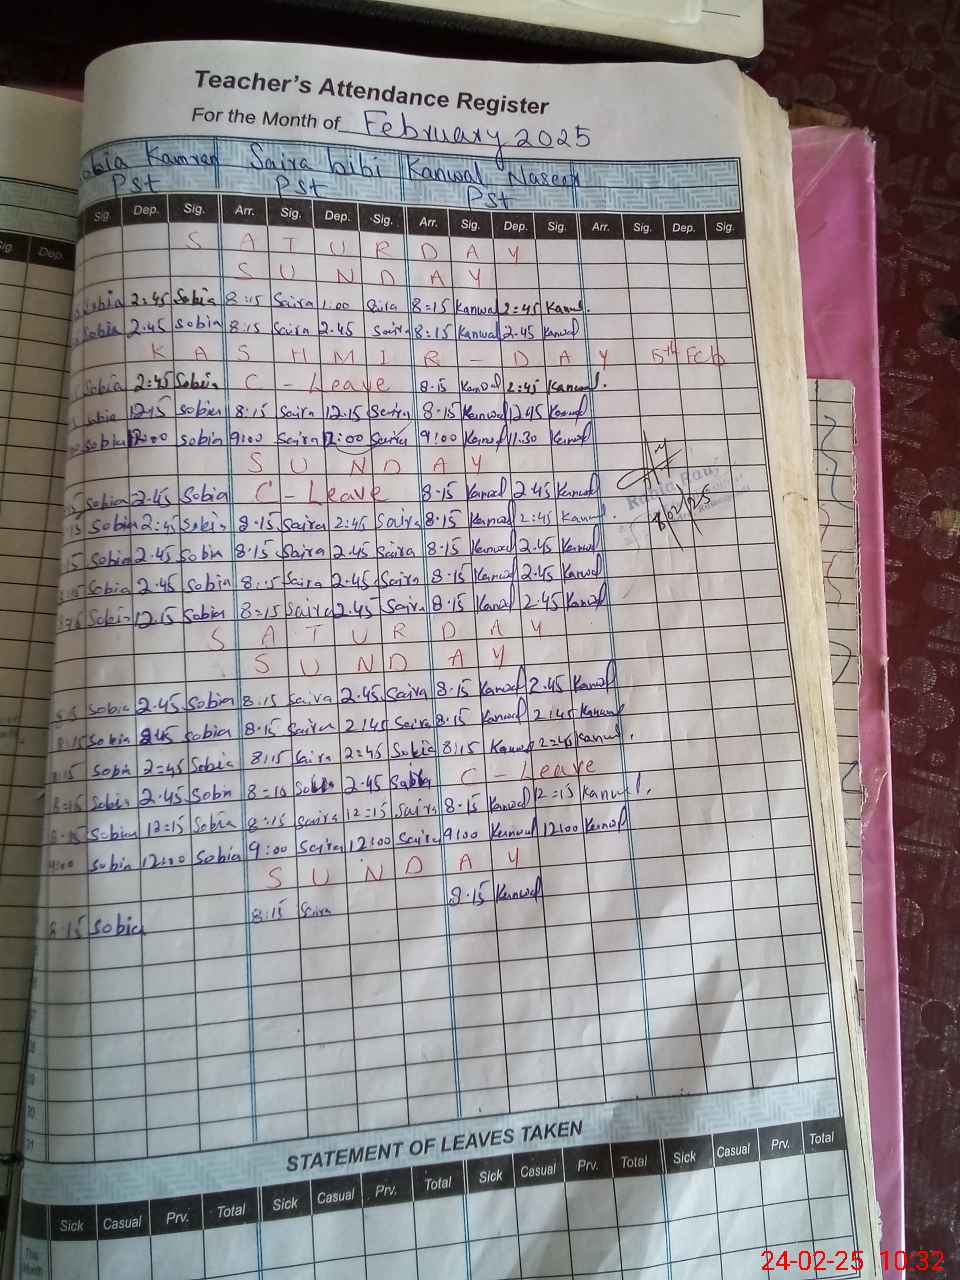 Teacher's Attendance Register
For the Month of February 2025
Kamran Saira bibi Kanwal Naseem
Pst Pst Pst
Sig. Dep. Sig. Arr. Sig. Dep. Sig. Arr. Sig. Dep. Sig. Arr. Sig. Dep. Sig.
SATURDAY
SUNDAY
Sobia 2=45 Sobia 8:15 Saira 1:00 Saira 8=15 Kanwal 2=45 Kanwal.
Sobia 2.45 Sobia 8:15 Saira 2.45 Saira 8:15 Kanwal 2.45 Kanwal
KASHMIR-DAY 5th Feb
Sobia 2:45 Sobia C-Leave 8.15 Kanwal 2:45 Kanwal.
Sobia 12.15 Sobia 8:15 Saira 12.15 Saira 8.15 Kanwal 12.45 Kanwal
Sobia 12:00 Sobia 9:00 Saira 12:00 Saira 9:00 Kanwal 11.30 Kanwal
SUNDAY
Sobia 2.45 Sobia C-Leave 8.15 Kanwal 2.45 Kanwal
Sobia 2:45 Sobia 8.15 Saira 2:45 Saira 8.15 Kanwal 2:45 Kanwal.
Sobia 2.45 Sobia 8.15 Saira 2.45 Saira 8.15 Kanwal 2.45 Kanwal
Sobia 2.45 Sobia 8:15 Saira 2.45 Saira 8.15 Kanwal 2.45 Kanwal
Sobia 12.15 Sobia 8=15 Saira 2.45 Saira 8.15 Kanwal 2.45 Kanwal
SATURDAY
SUNDAY
Sobia 2.45 Sobia 8:15 Saira 2.45 Saira 8.15 Kanwal 2.45 Kanwal
8:15 Sobia 2.45 Sobia 8.15 Saira 2:45 Saira 8.15 Kanwal 2:45 Kanwal
8:15 Sobia 2=45 Sobia 8:15 Saira 2=45 Sobia 8:15 Kanwal 2=45 Kanwal.
8=15 Sobia 2.45 Sobia 8=10 2.45 C-Leave
8.15 Sobia 12=15 Sobia 8:15 Saira 12=15 Saira 8.15 Kanwal 12=15 Kanwal.
9:00 Sobia 12:00 Sobia 9:00 Saira 12:00 Saira 9:00 Kanwal 12:00 Kanwal
SUNDAY
8.15 Sobia 8:15 Saira 8.15 Kanwal
STATEMENT OF LEAVES TAKEN
Sick Casual Prv. Total Sick Casual Prv. Total Sick Casual Prv. Total Sick Casual Prv. Total
24-02-25 10:32